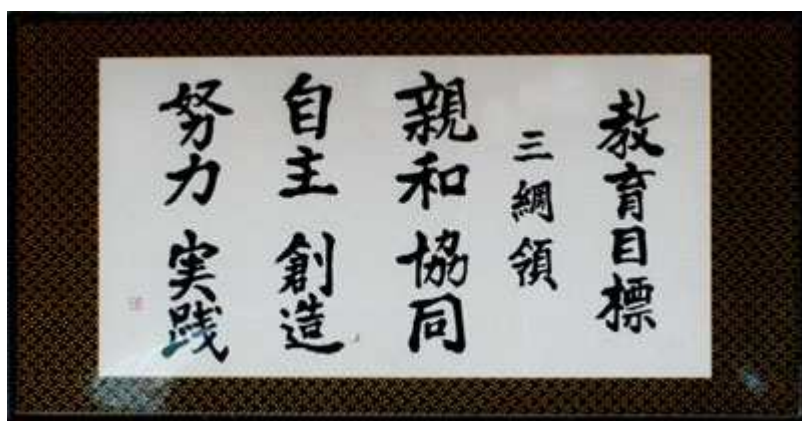 教育目標
三綱領
親和 協同
自主 創造
努力 実践